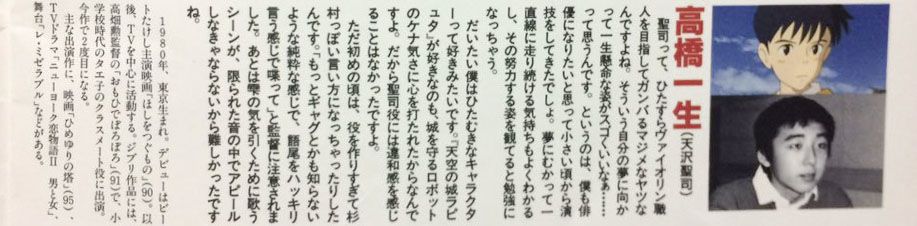 高橋一生（天沢聖司）
聖司って、ひたすらヴァイオリン職
人を目指してガンバるマジメなヤツな
んですよね。そういう自分の夢に向か
って一生懸命な姿がスゴくいいなぁ……
って思うんです。というのは、僕も俳
優になりたいと思って小さい頃から演
技をしてきたでしょ。夢にむかって一
直線に走り続ける気持ちもよくわかる
し、その努力する姿を観てると勉強に
なっちゃう。
だいたい僕はひたむきなキャラクタ
ーって好きみたいです。『天空の城ラピ
ュタ』が好きなのも、城を守るロボット
のケナ気さに心を打たれたからなんで
すよ。だから聖司役には違和感を感じ
ることはなかったですよ。
ただ初めの頃は、役を作りすぎて杉
村っぽい言い方になっちゃったりした
んです。「もっとギャグとかも知らない
ような純粋な感じで、語尾をハッキリ
言う感じで喋って」と監督に注意されま
した。あとは雫の気を引くために歌う
シーンが、限られた音の中でアピール
しなきゃならないから難しかったです
ね。
1980年、東京生まれ。デビューはビー
トたけし主演映画『ほしをつぐもの』（90）。以
後、TVを中心に活動する。ジブリ作品には、
高畑勲監督の『おもひでぽろぽろ』（91）で、小
学校時代のタエ子のクラスメート役に出演。
今作で2度目になる。
主な出演作に、映画『ひめゆりの塔』（95）、
TVドラマ『ニューヨーク恋物語Ⅱ 男と女』、
舞台『レ・ミゼラブル』などがある。